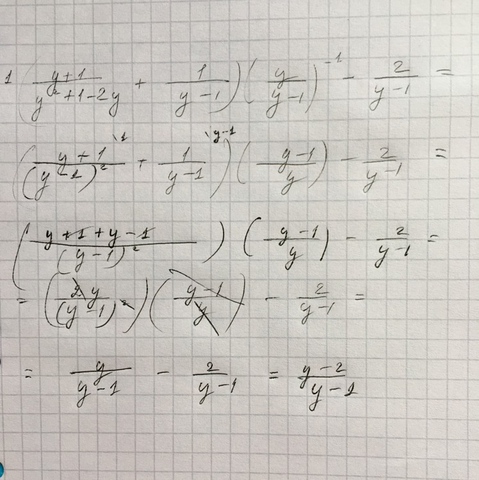 1 (y+1/y²+1-2y + 1/y-1)(y/y-1)⁻¹ - 2/y-1 =
(y+1/(y-1)² \1 + 1/y-1 \y-1)(y-1/y) - 2/y-1 =
(y+1+y-1/(y-1)²)(y-1/y) - 2/y-1 =
= (2y/(y-1)²)(y-1/y) - 2/y-1 =
= y/y-1 - 2/y-1 = y-2/y-1